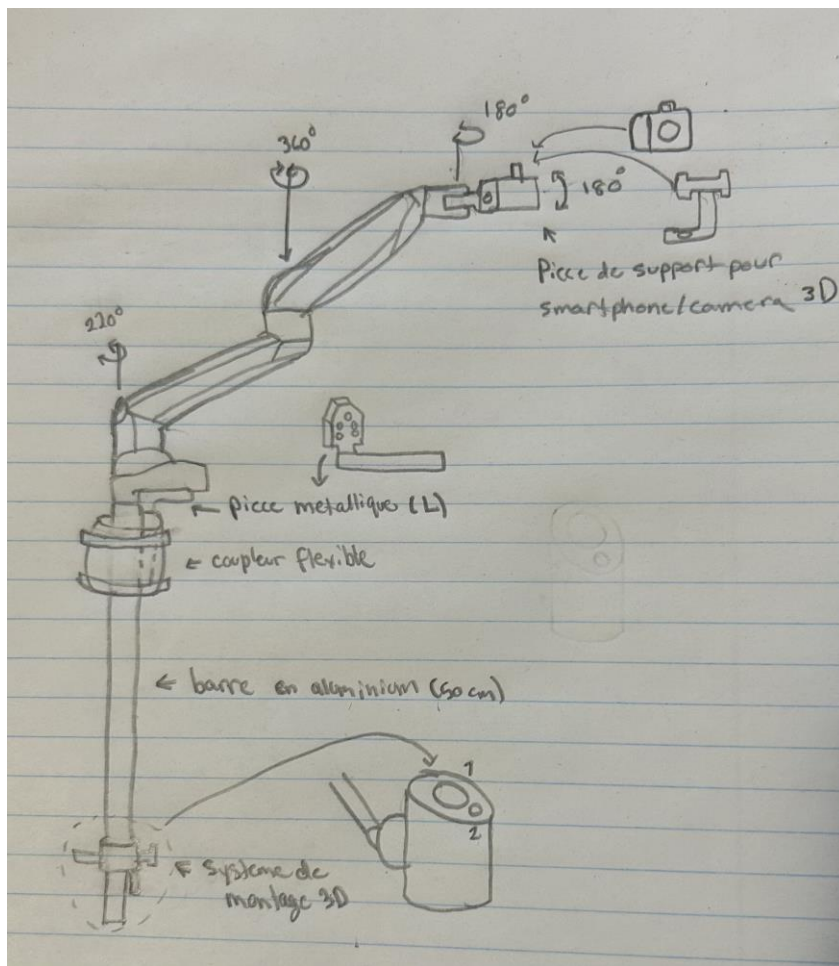 180°
360°
180°
Piece de support pour
smartphone/camera 3D
220°
piece metallique (L)
coupleur flexible
barre en aluminium (50cm)
1
2
Systeme de
montage 3D